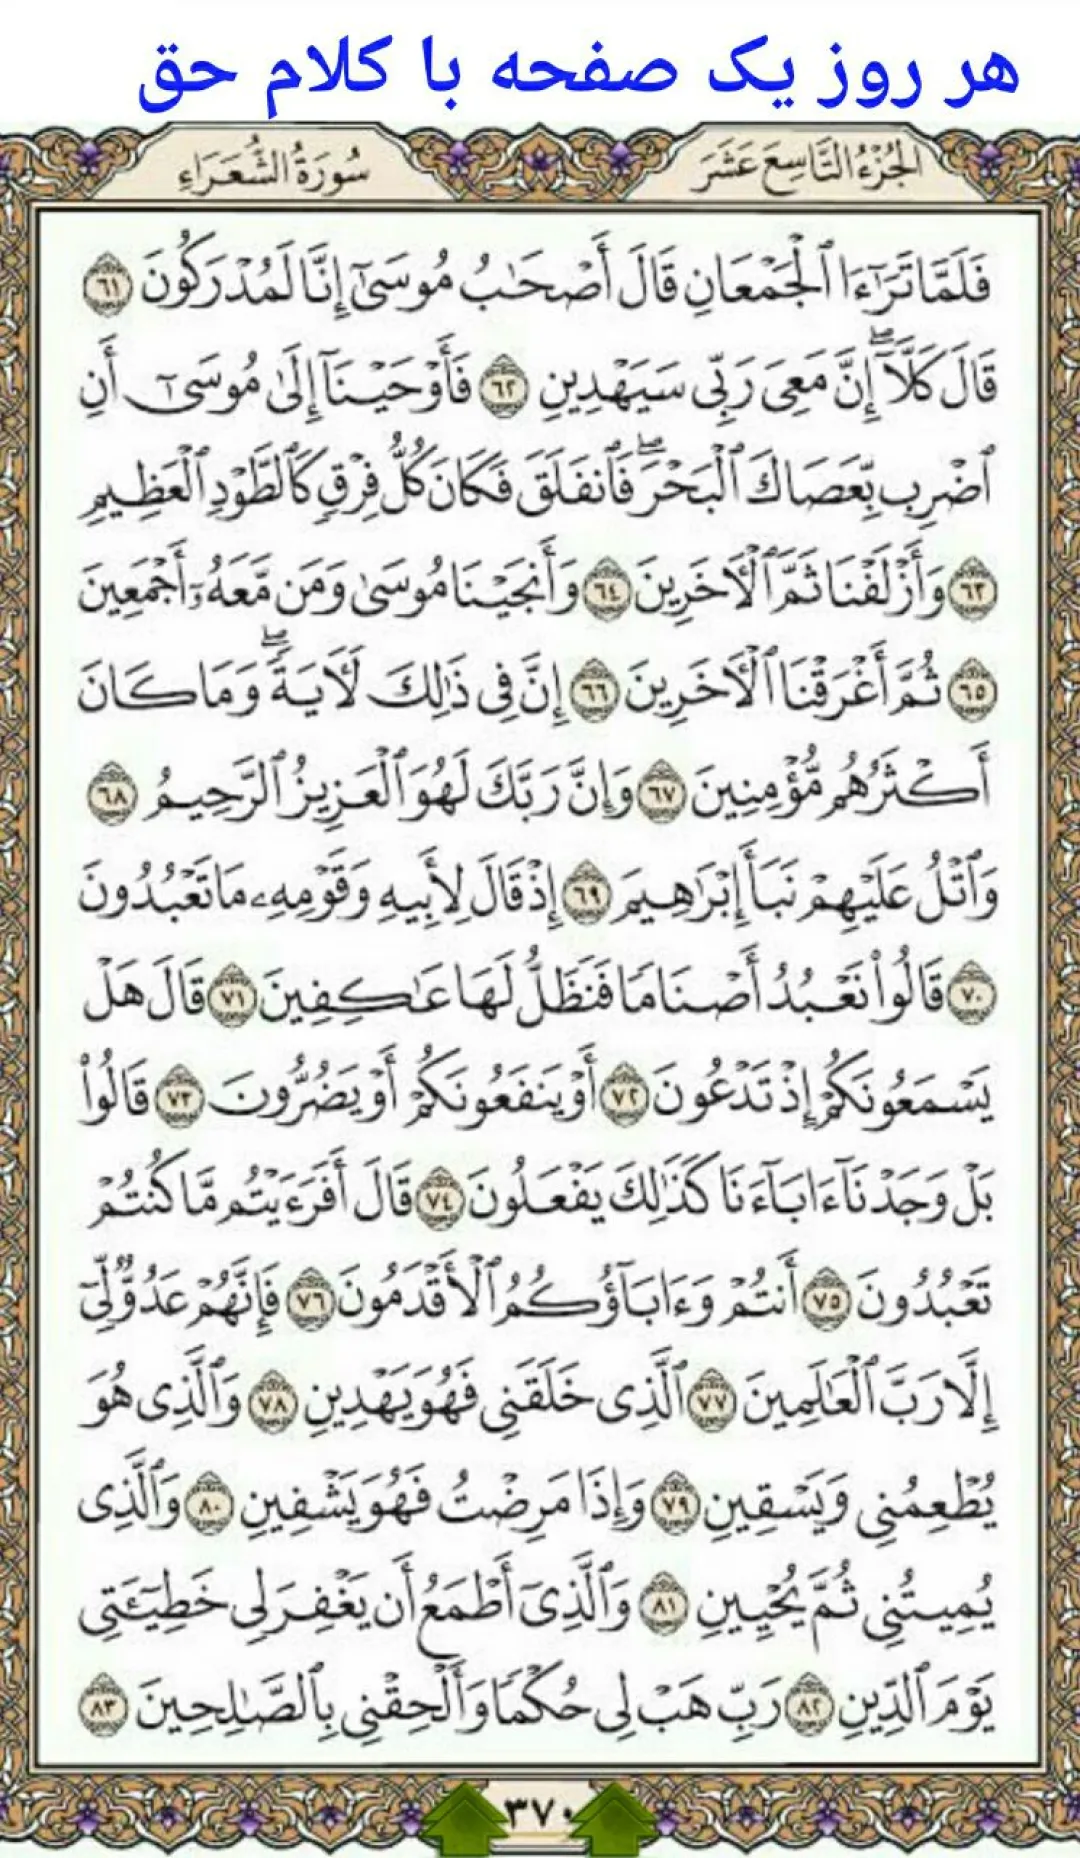 هر روز یک صفحه با کلام حق
الجُزْءُ التَّاسِعَ عَشَرَ
سُورَةُ الشُّعَرَاءِ
فَلَمَّا تَرَٰٓءَا ٱلْجَمْعَانِ قَالَ أَصْحَٰبُ مُوسَىٰٓ إِنَّا لَمُدْرَكُونَ ٦١
قَالَ كَلَّآ ۖ إِنَّ مَعِىَ رَبِّى سَيَهْدِينِ ٦٢ فَأَوْحَيْنَآ إِلَىٰ مُوسَىٰٓ أَنِ
ٱضْرِب بِّعَصَاكَ ٱلْبَحْرَ ۖ فَٱنفَلَقَ فَكَانَ كُلُّ فِرْقٍ كَٱلطَّوْدِ ٱلْعَظِيمِ
٦٣ وَأَزْلَفْنَا ثَمَّ ٱلْءَاخَرِينَ ٦٤ وَأَنجَيْنَا مُوسَىٰ وَمَن مَّعَهُۥٓ أَجْمَعِينَ
٦٥ ثُمَّ أَغْرَقْنَا ٱلْءَاخَرِينَ ٦٦ إِنَّ فِى ذَٰلِكَ لَءَايَةً ۖ وَمَا كَانَ
أَكْثَرُهُم مُّؤْمِنِينَ ٦٧ وَإِنَّ رَبَّكَ لَهُوَ ٱلْعَزِيزُ ٱلرَّحِيمُ ٦٨
وَٱتْلُ عَلَيْهِمْ نَبَأَ إِبْرَٰهِيمَ ٦٩ إِذْ قَالَ لِأَبِيهِ وَقَوْمِهِۦ مَا تَعْبُدُونَ
٧٠ قَالُوا۟ نَعْبُدُ أَصْنَامًا فَنَظَلُّ لَهَا عَٰكِفِينَ ٧١ قَالَ هَلْ
يَسْمَعُونَكُمْ إِذْ تَدْعُونَ ٧٢ أَوْ يَنفَعُونَكُمْ أَوْ يَضُرُّونَ ٧٣ قَالُوا۟
بَلْ وَجَدْنَآ ءَابَآءَنَا كَذَٰلِكَ يَفْعَلُونَ ٧٤ قَالَ أَفَرَءَيْتُم مَّا كُنتُمْ
تَعْبُدُونَ ٧٥ أَنتُمْ وَءَابَآؤُكُمُ ٱلْأَقْدَمُونَ ٧٦ فَإِنَّهُمْ عَدُوٌّ لِّىٓ
إِلَّا رَبَّ ٱلْعَٰلَمِينَ ٧٧ ٱلَّذِى خَلَقَنِى فَهُوَ يَهْدِينِ ٧٨ وَٱلَّذِى هُوَ
يُطْعِمُنِى وَيَسْقِينِ ٧٩ وَإِذَا مَرِضْتُ فَهُوَ يَشْفِينِ ٨٠ وَٱلَّذِى
يُمِيتُنِى ثُمَّ يُحْيِينِ ٨١ وَٱلَّذِىٓ أَطْمَعُ أَن يَغْفِرَ لِى خَطِيٓـَٔتِى
يَوْمَ ٱلدِّينِ ٨٢ رَبِّ هَبْ لِى حُكْمًا وَأَلْحِقْنِى بِٱلصَّٰلِحِينَ ٨٣
٣٧٠